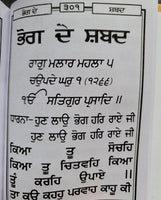 ਭੋਗ ਦੇ ੩੦੧ ਸ਼ਬਦ
ਭੋਗ ਦੇ ਸ਼ਬਦ
ਰਾਗੁ ਮਲਾਰ ਮਹਲਾ ੫
ਚਉਪਦੇ ਘਰੁ ੧ (੧੨੬੬)
ੴ ਸਤਿਗੁਰ ਪ੍ਰਸਾਦਿ ॥
ਧਾਰਨਾ- ਹੁਣ ਲਾਉ ਭੋਗ ਹਰਿ ਰਾਏ ਜੀ
ਹੁਣ ਲਾਉ ਭੋਗ ਹਰਿ ਰਾਏ ਜੀ
ਕਿਆ ਤੂ ਸੋਚਹਿ
ਕਿਆ ਤੂ ਚਿਤਵਹਿ ਕਿਆ
ਤੂੰ ਕਰਹਿ ਉਪਾਏ ॥
ਤਾ ਕਉ ਕਹਹੁ ਪਰਵਾਹ ਕਾਹੂ ਕੀ